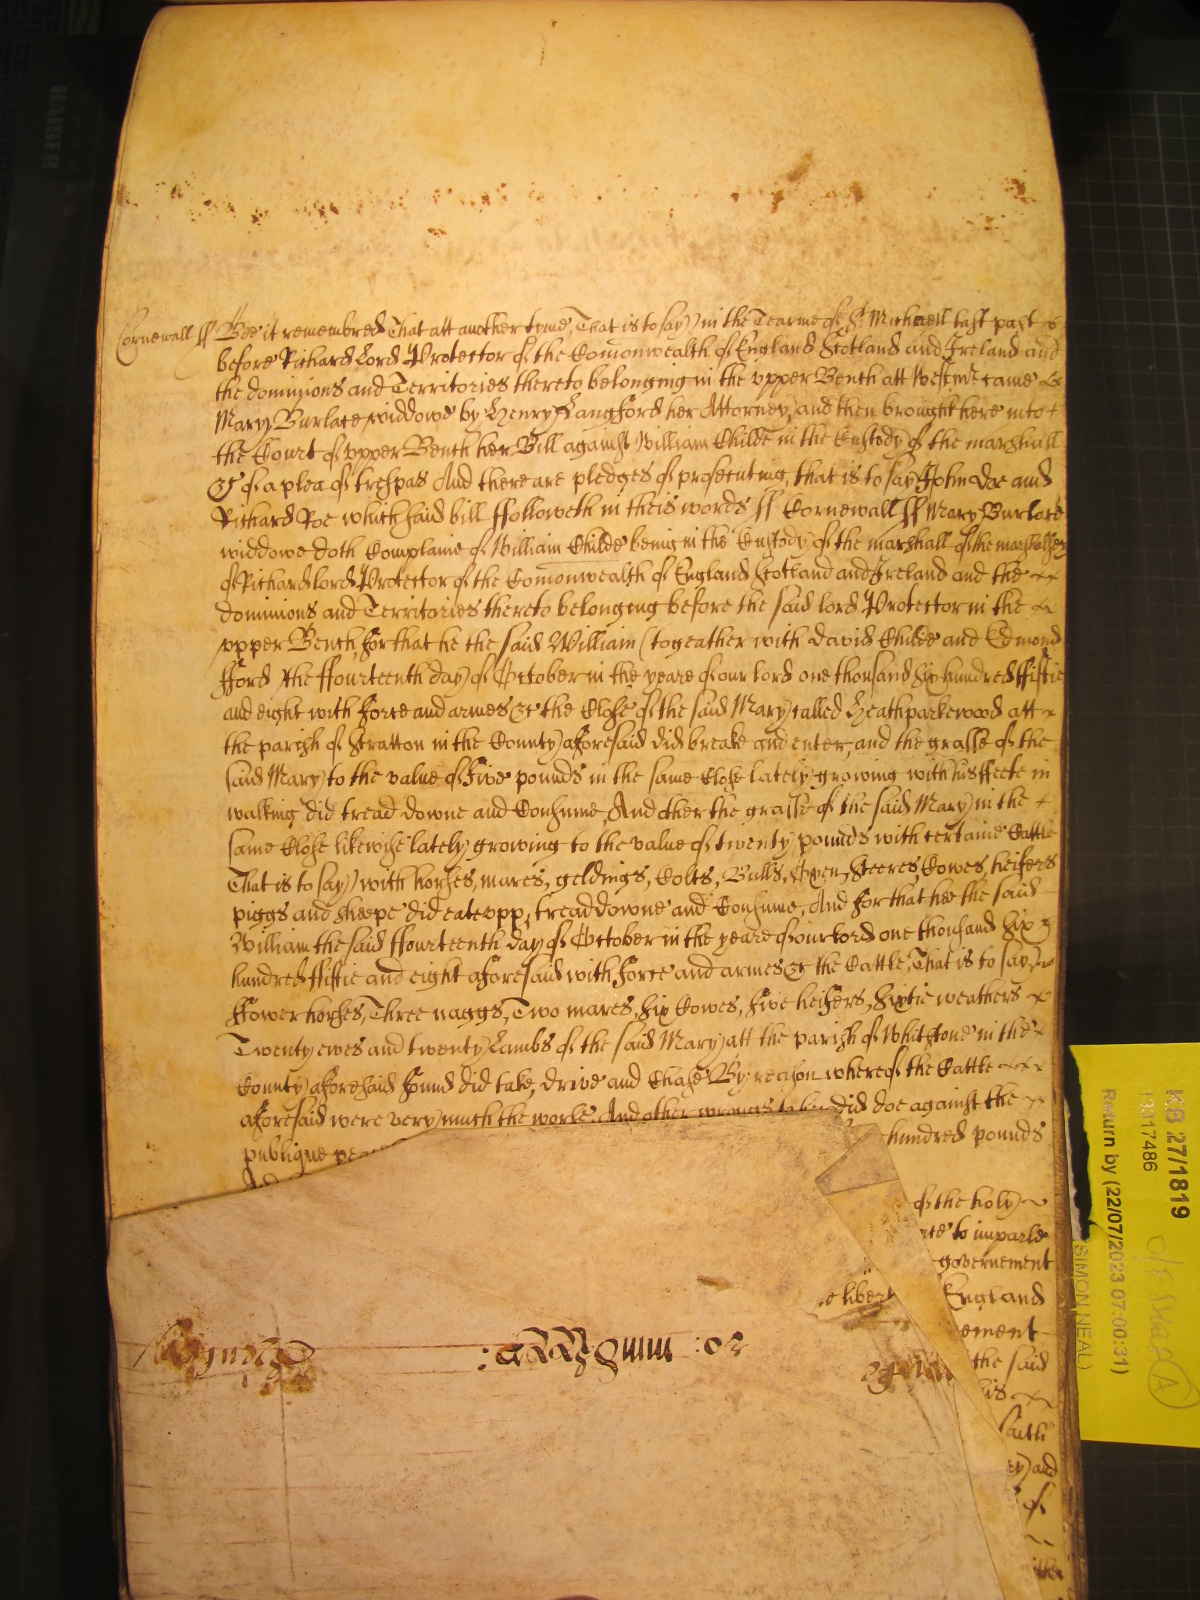 Cornewall ss Bee it remembred That att another tyme, That is to say, in the Tearme of St Michaell last past
before Richard Lord Protector of the Comonwealth of England Scotland and Ireland and
the dominions and Territories thereto belonging in the upper Bench att Westmr came
Mary Burlace widdowe by Henry Langford her Attorney, and then brought here into
the Court of upper Bench her Bill against William Childe in the Custody of the marshall
&c of a plea of trespas And there are pledges of prosecuting, that is to say John Doe and
Richard Roe which said bill ffolloweth in theis words ss Cornewall ss Mary Burlace
widdowe doth Complaine of William Childe being in the Custody of the marshall of the marshalsey
of Richard lord Protector of the Comonwealth of England Scotland and Ireland and the
dominions and Territories thereto belonging before the said lord Protector in the
upper Bench, for that he the said William (togeather with David Childe and Edmond
fford) the ffourteenth day of October in the yeare of our lord one thousand six hundred ffiftie
and eight with force and armes &c the Close of the said Mary called Heathparkewood att
the parish of Stratton in the County aforesaid did breake and enter, and the grasse of the
said Mary to the value of Five pounds in the same Close lately growing with his ffeete in
walking did tread downe and Consume, And other the grasse of the said Mary in the
same Close likewise lately growing to the value of twenty pounds with certaine Cattle
That is to say, with horses, mares, geldings, Colts, Bulls, Oxen, Steeres, Cowes, heifers
piggs and sheepe did eate upp, tread downe and Consume, And for that hee the said
William the said ffourteenth day of October in the yeare of our lord one thousand six
hundred ffiftie and eight aforesaid with force and armes &c the Cattle, That is to say,
ffower horses, Three naggs, Two mares, six Cowes, five heifers, sixtie weathers
Twenty ewes and twenty Lambs of the said Mary att the parish of Whitstone in the
County aforesaid found did take, drive and Chase By reason whereof the Cattle
aforesaid were very much the worse And other wrongs to her did doe against the
publique pea hundred pounds
of the holy
to imparle
governement
e libert England
ement
the said
his
ey) and
of